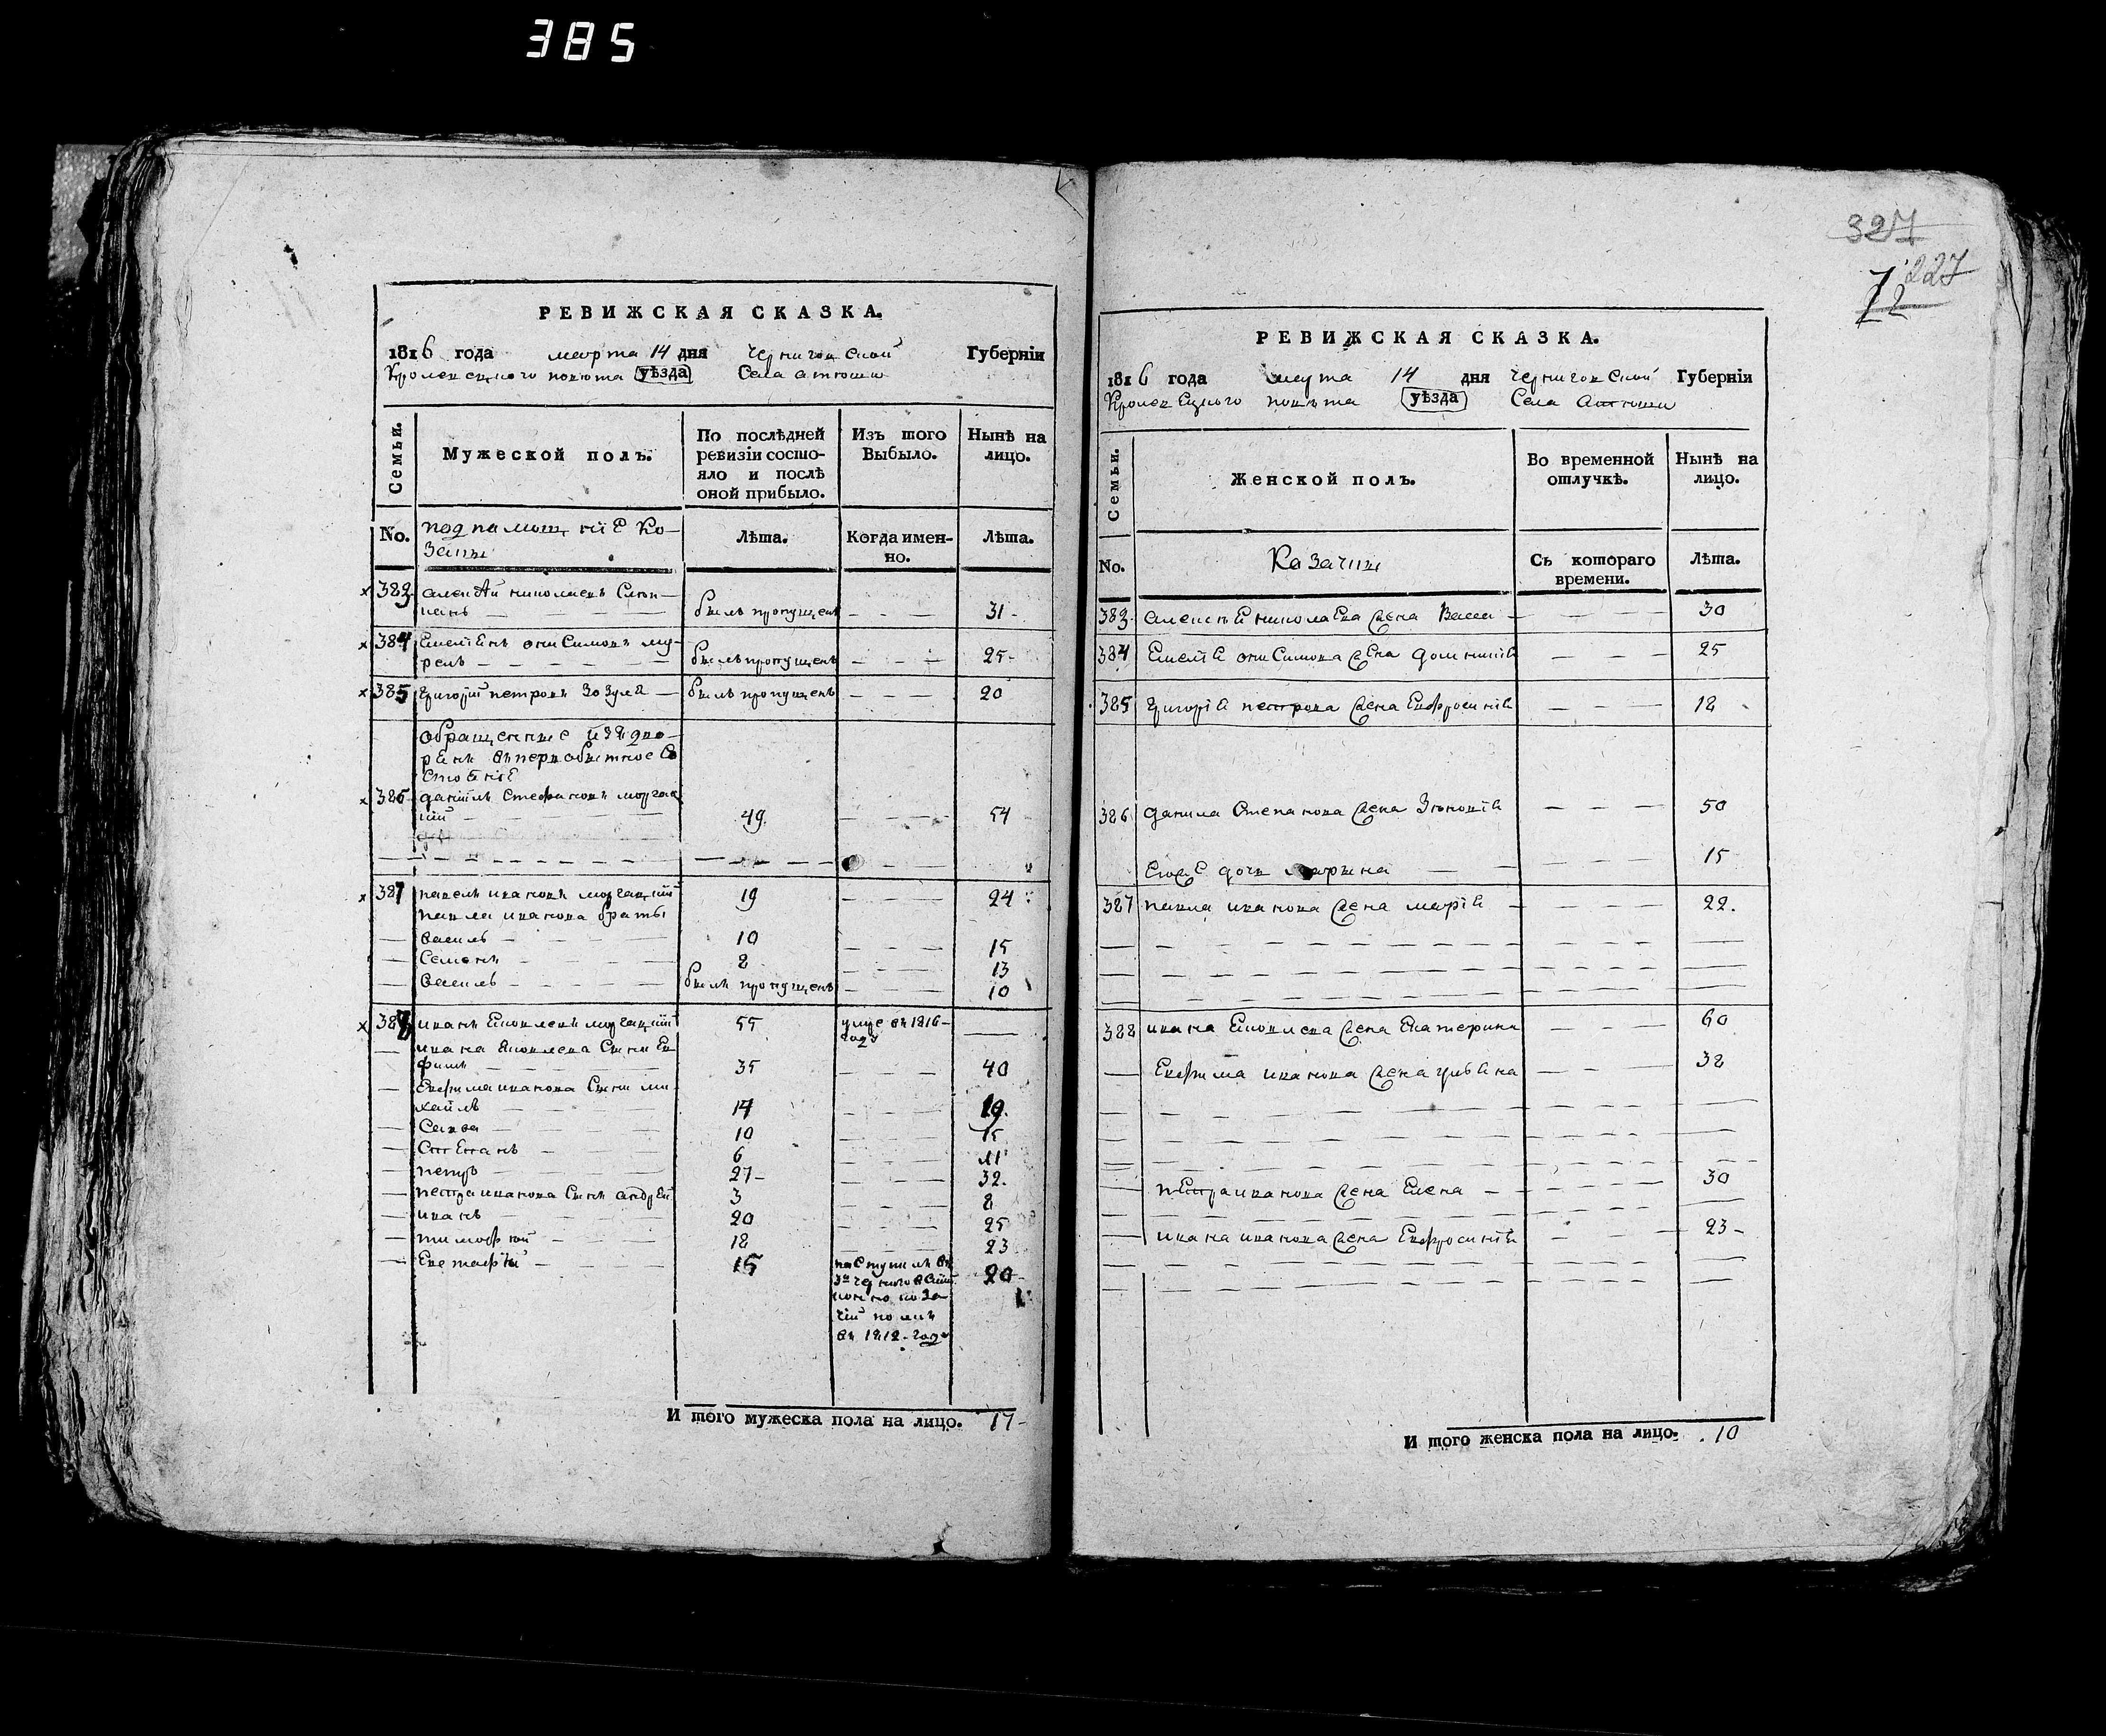 385
327
227
12
РЕВИЖСКАЯ СКАЗКА.
1816 года марта 14 дня Черниговской Губерніи
Кролевецкого повета уѣзда Села Атюши
Семьи.
Мужеской полъ.
По послѣдней
ревизіи состо-
яло и послѣ
оной прибыло.
Изъ того
Выбыло.
Нынѣ на
лицо.
No.
подпамощніе Ко-
заки
Лѣта.
Когда имен-
но.
Лѣта.
383 алексѣй николаевъ
былъ пропущенъ — — — 31
384 Емелѣянъ онисимовъ му-
рель былъ пропущенъ — — — 25
385 Григорій петровъ Зозуля — былъ пропущенъ — — — 20
обращенные изъ дво-
рянъ въ первобытное со-
стояніе
386 данило Стефановъ
49 — — — 54
387 павелъ ивановъ 19 — — — 24
павла иванова браты
василь 10 — — — 15
Семенъ 8 — — — 13
василь былъ пропущенъ — — — 10
388 иванъ Яковлевъ 55 умре въ 1816
году —
ивана Яковлева Сынъ Ев-
фимъ 35 — — — 40
Евфима иванова Сыны ми-
хайлъ 14 — — — 19
Савва 10 — — — 15
Степанъ 6 — — — 11
петръ 27 — — — 32
петра иванова Сынъ андрей 3 — — — 8
иванъ 20 — — — 25
тимофей 18 — — — 23
Евстафій 15 поступилъ въ
3й черниговскій
конно коза-
чій полкъ
въ 1812 году 20
И того мужеска пола на лицо. 17
РЕВИЖСКАЯ СКАЗКА.
1816 года марта 14 дня Черниговской Губерніи
Кролевецкого повета уѣзда Села Атюши
Семьи.
Женской полъ.
Во временной
отлучкѣ.
Нынѣ на
лицо.
No.
Козачки
Съ котораго
времени.
Лѣта.
383 алексѣя николаева жена Васса — — — 30
384 Емелѣя онисимова жена домникія — — — 25
385 Григорія петрова жена Евфросинія — — — 18
386 данила Степанова жена Зѣновія — — — 50
Егоже дочь марина — — — 15
387 павла иванова жена марія — — — 22
388 ивана Яковлева жена Екатерина — — — 60
Евфима иванова жена улѣяна — — — 38
петра иванова жена Елена — — — 30
ивана иванова жена Евфросинія — — — 23
И того женска пола на лицо. 10